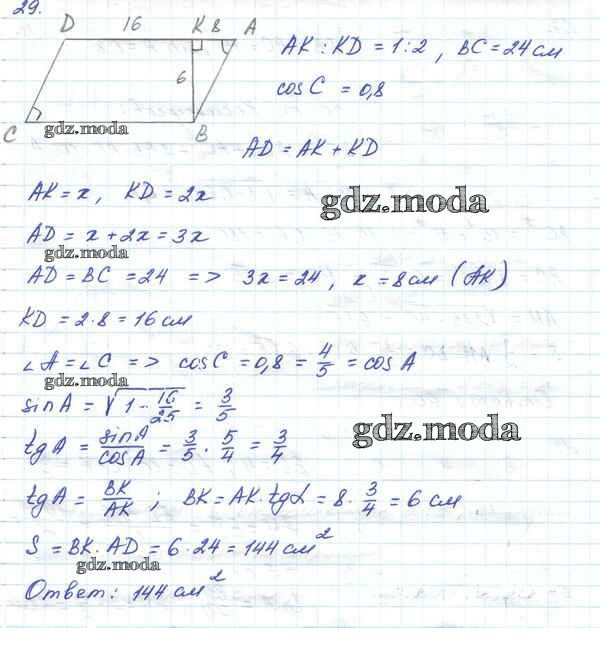 29.
D 16 K 8 A
AK : KD = 1:2 , BC = 24 см
6
cos C = 0,8
C B
gdz.moda
AD = AK + KD
AK = x , KD = 2x
gdz.moda
AD = x + 2x = 3x
gdz.moda
AD = BC = 24 => 3x = 24 , x = 8 см (AK)
KD = 2·8 = 16 см
∠A = ∠C => cos C = 0,8 = 4/5 = cos A
gdz.moda
sin A = √(1 - 16/25) = 3/5
gdz.moda
tg A = sin A/cos A = 3/5 · 5/4 = 3/4
tg A = BK/AK ; BK = AK · tg L = 8 · 3/4 = 6 см
S = BK · AD = 6 · 24 = 144 см²
gdz.moda
Ответ: 144 см²